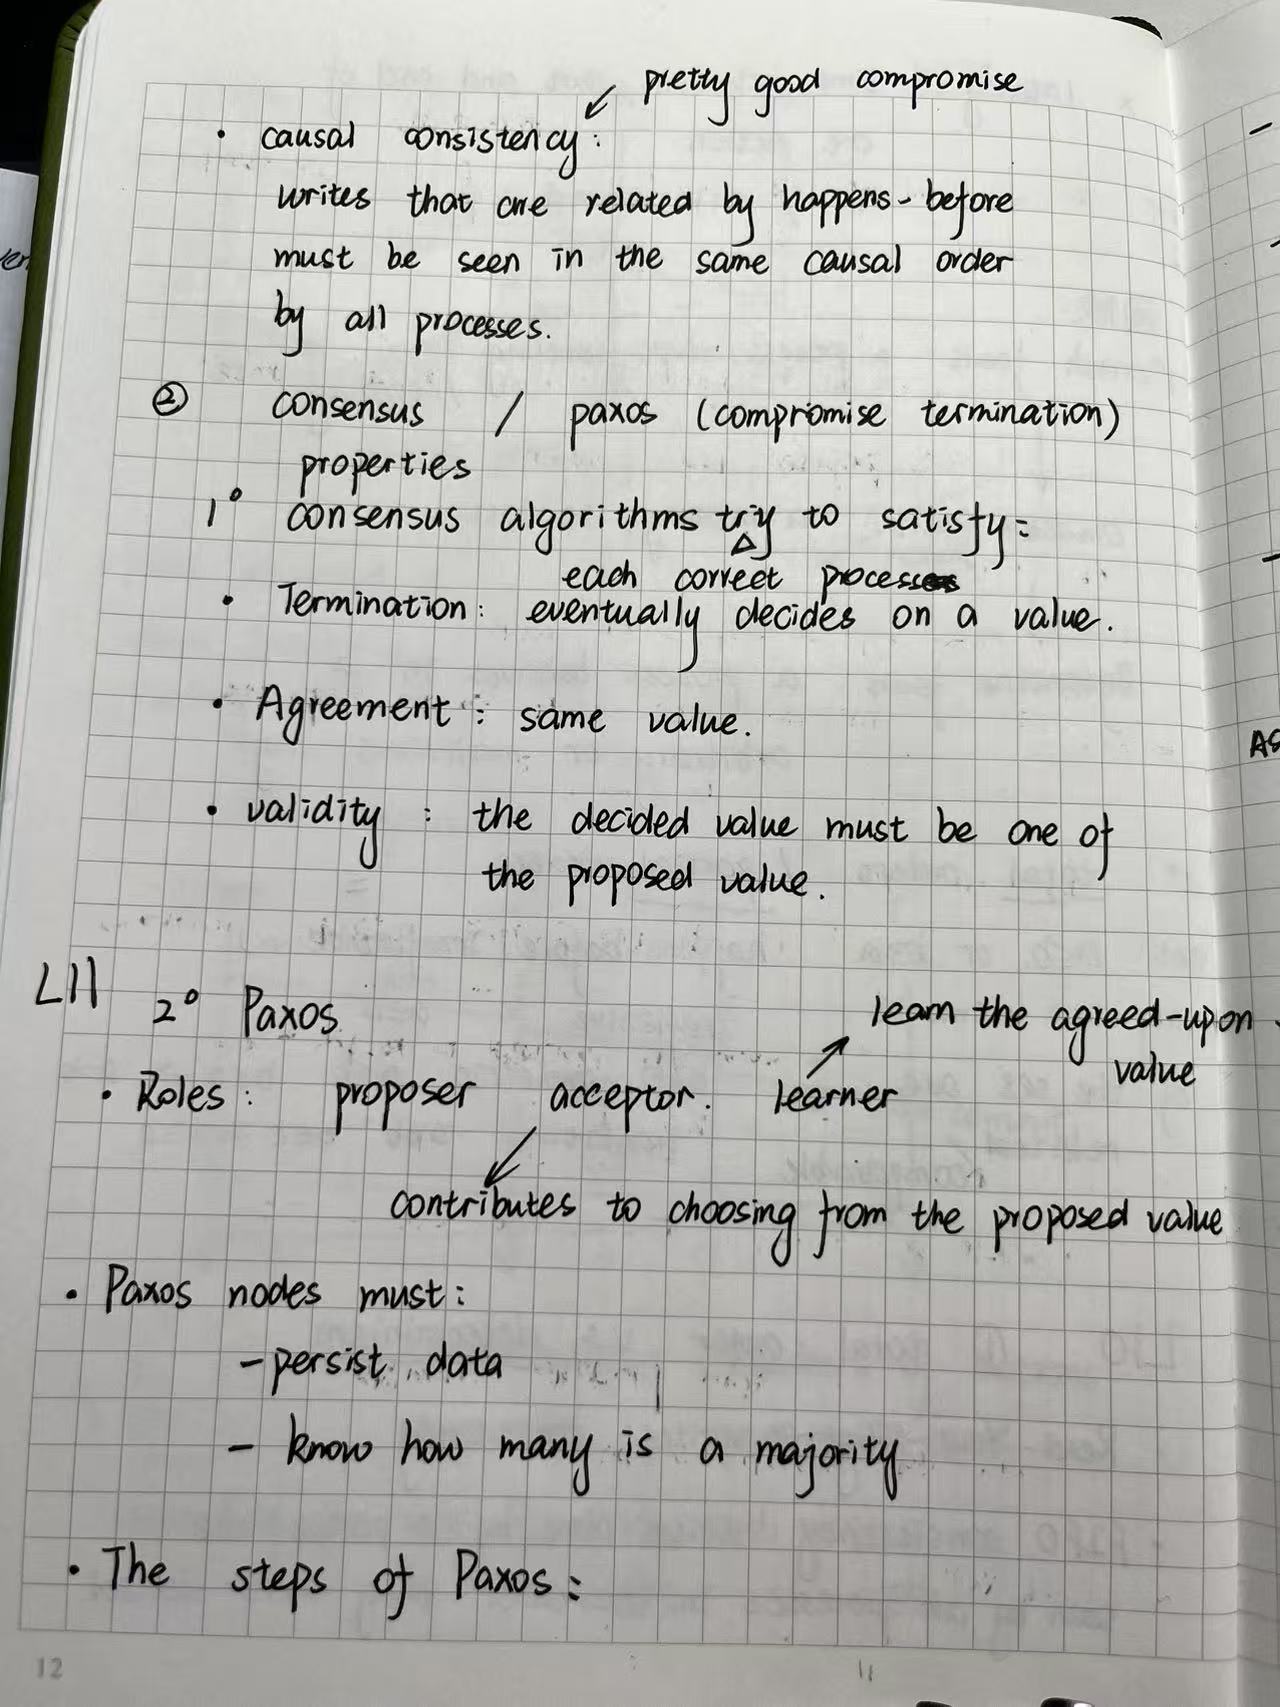 pretty good compromise
• causal consistency:
writes that are related by happens-before
must be seen in the same causal order
by all processes.
② consensus / paxos (compromise termination)
properties
1° consensus algorithms try to satisfy:
each correct process
• Termination: eventually decides on a value.
• Agreement: same value.
• validity: the decided value must be one of
the proposed value.
L11 2° Paxos
learn the agreed-upon
value
• Roles: proposer acceptor. learner
contributes to choosing from the proposed value
• Paxos nodes must:
- persist data
- know how many is a majority
• The steps of Paxos:
12